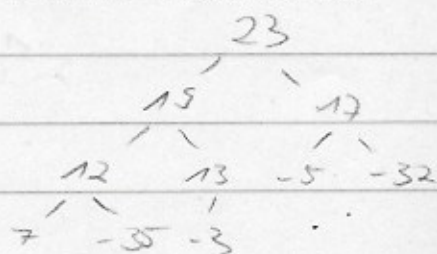 23
19 17
12 13 -5 -32
7 -35 -3